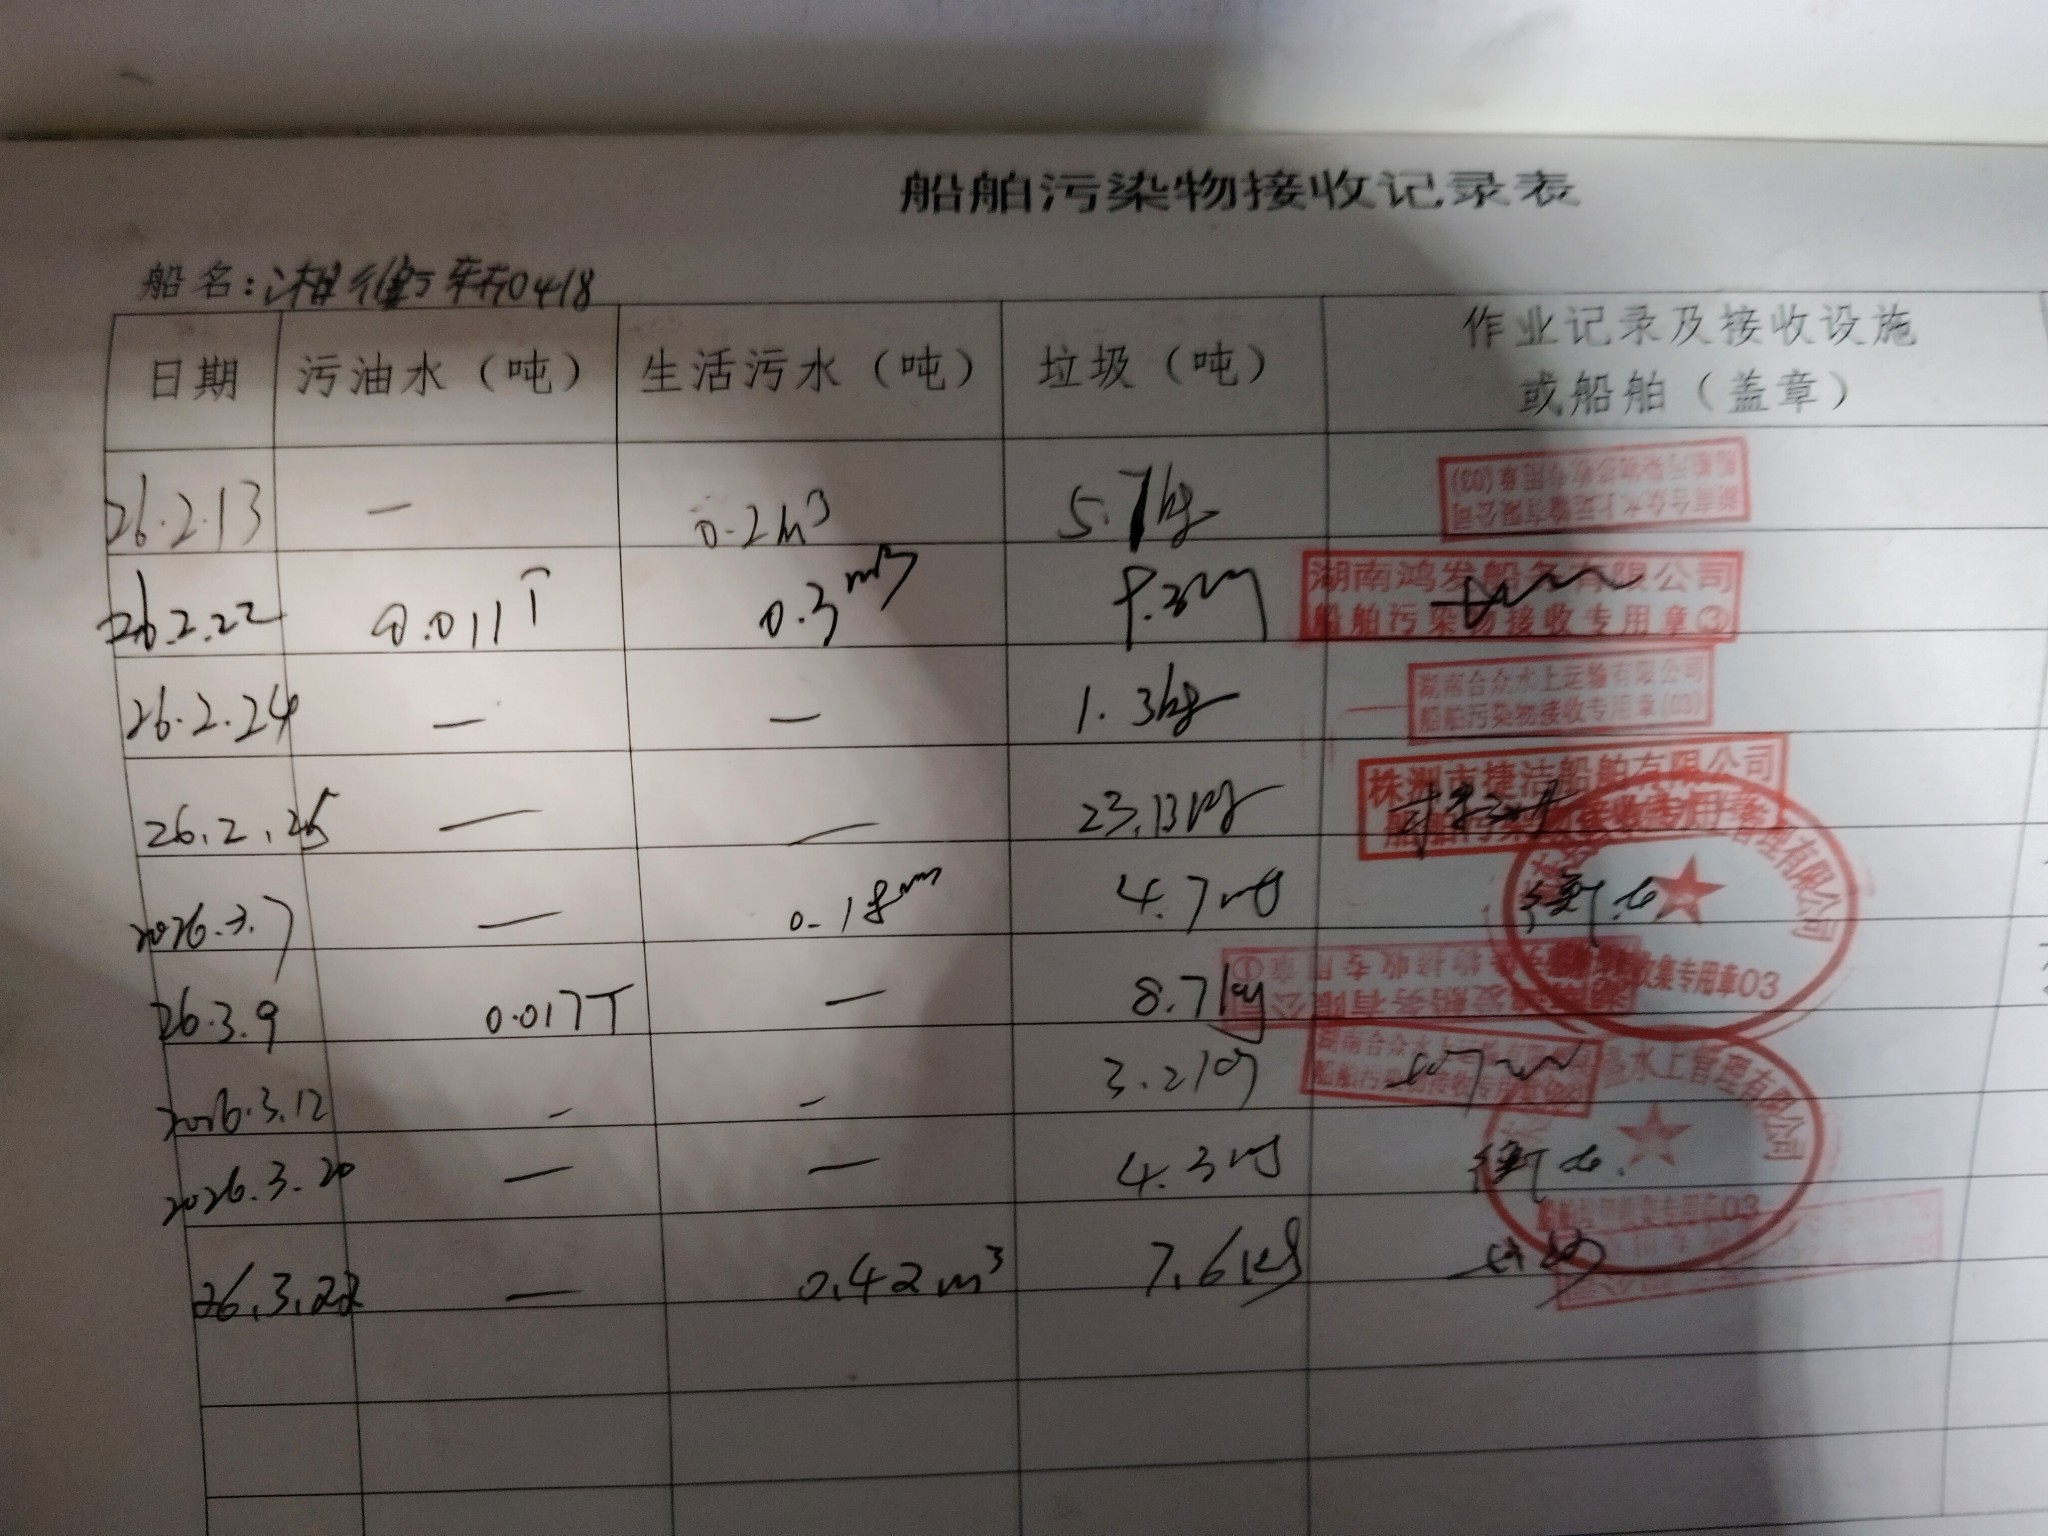 船舶污染物接收记录表
船名:湘衡 0418
日期 污油水（吨） 生活污水（吨） 垃圾（吨） 作业记录及接收设施
或船舶（盖章）
26.2.13 — 0.2m³ 5.7kg 湖南合众水上运输有限公司
船舶污染物接收专用章(03)
26.2.22 0.011T 0.3m³ 湖南鸿发船务有限公司
船舶污染物接收专用章③
26.2.24 — — 1.3kg 湖南合众水上运输有限公司
船舶污染物接收专用章(03)
26.2.25 — — 23.13kg 株洲市捷洁船舶有限公司
接收专用章
2026.3.7 — 0.18m³ 4.7kg 管理有限公司
收集专用章03
26.3.9 0.017T — 8.7kg 船务有限公司
接收专用章①
2026.3.12 - - 3.2kg 湖南合众水上运输有限公司
船舶污染物接收专用章
2026.3.20 — — 4.3kg 水上管理有限公司
收集专用章03
26.3.22 — 0.42m³ 7.6kg